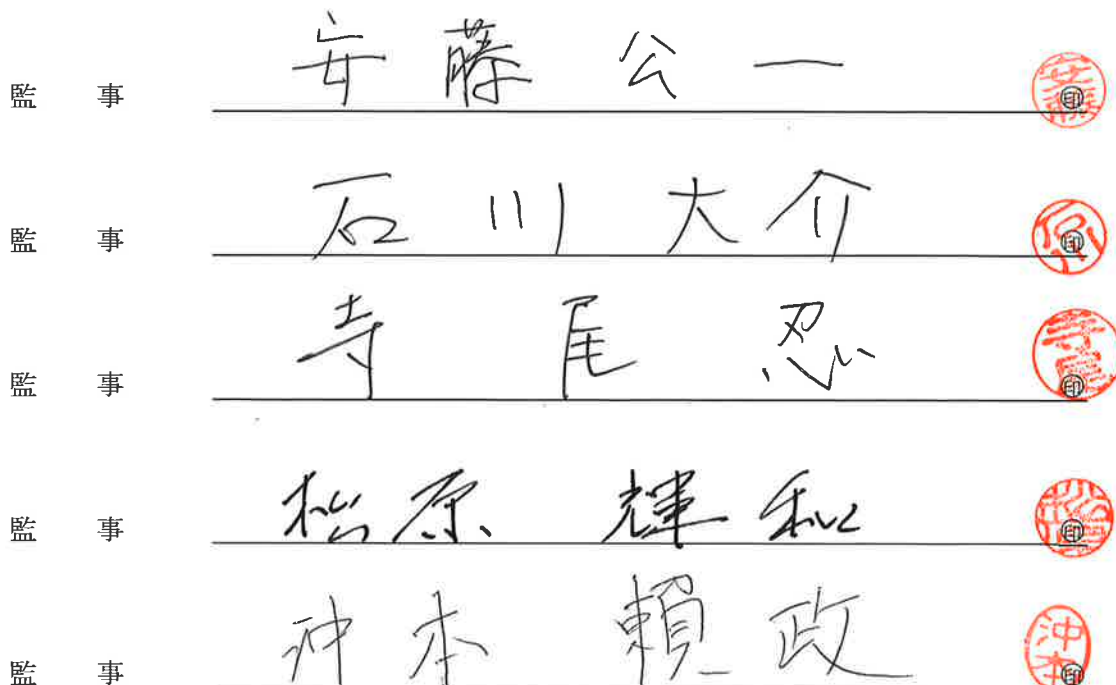 監 事 安 藤 公 一 ㊞
監 事 石 川 大 介 ㊞
監 事 寺 尾 忍 ㊞
監 事 松 原 輝 和 ㊞
監 事 沖 本 頼 政 ㊞